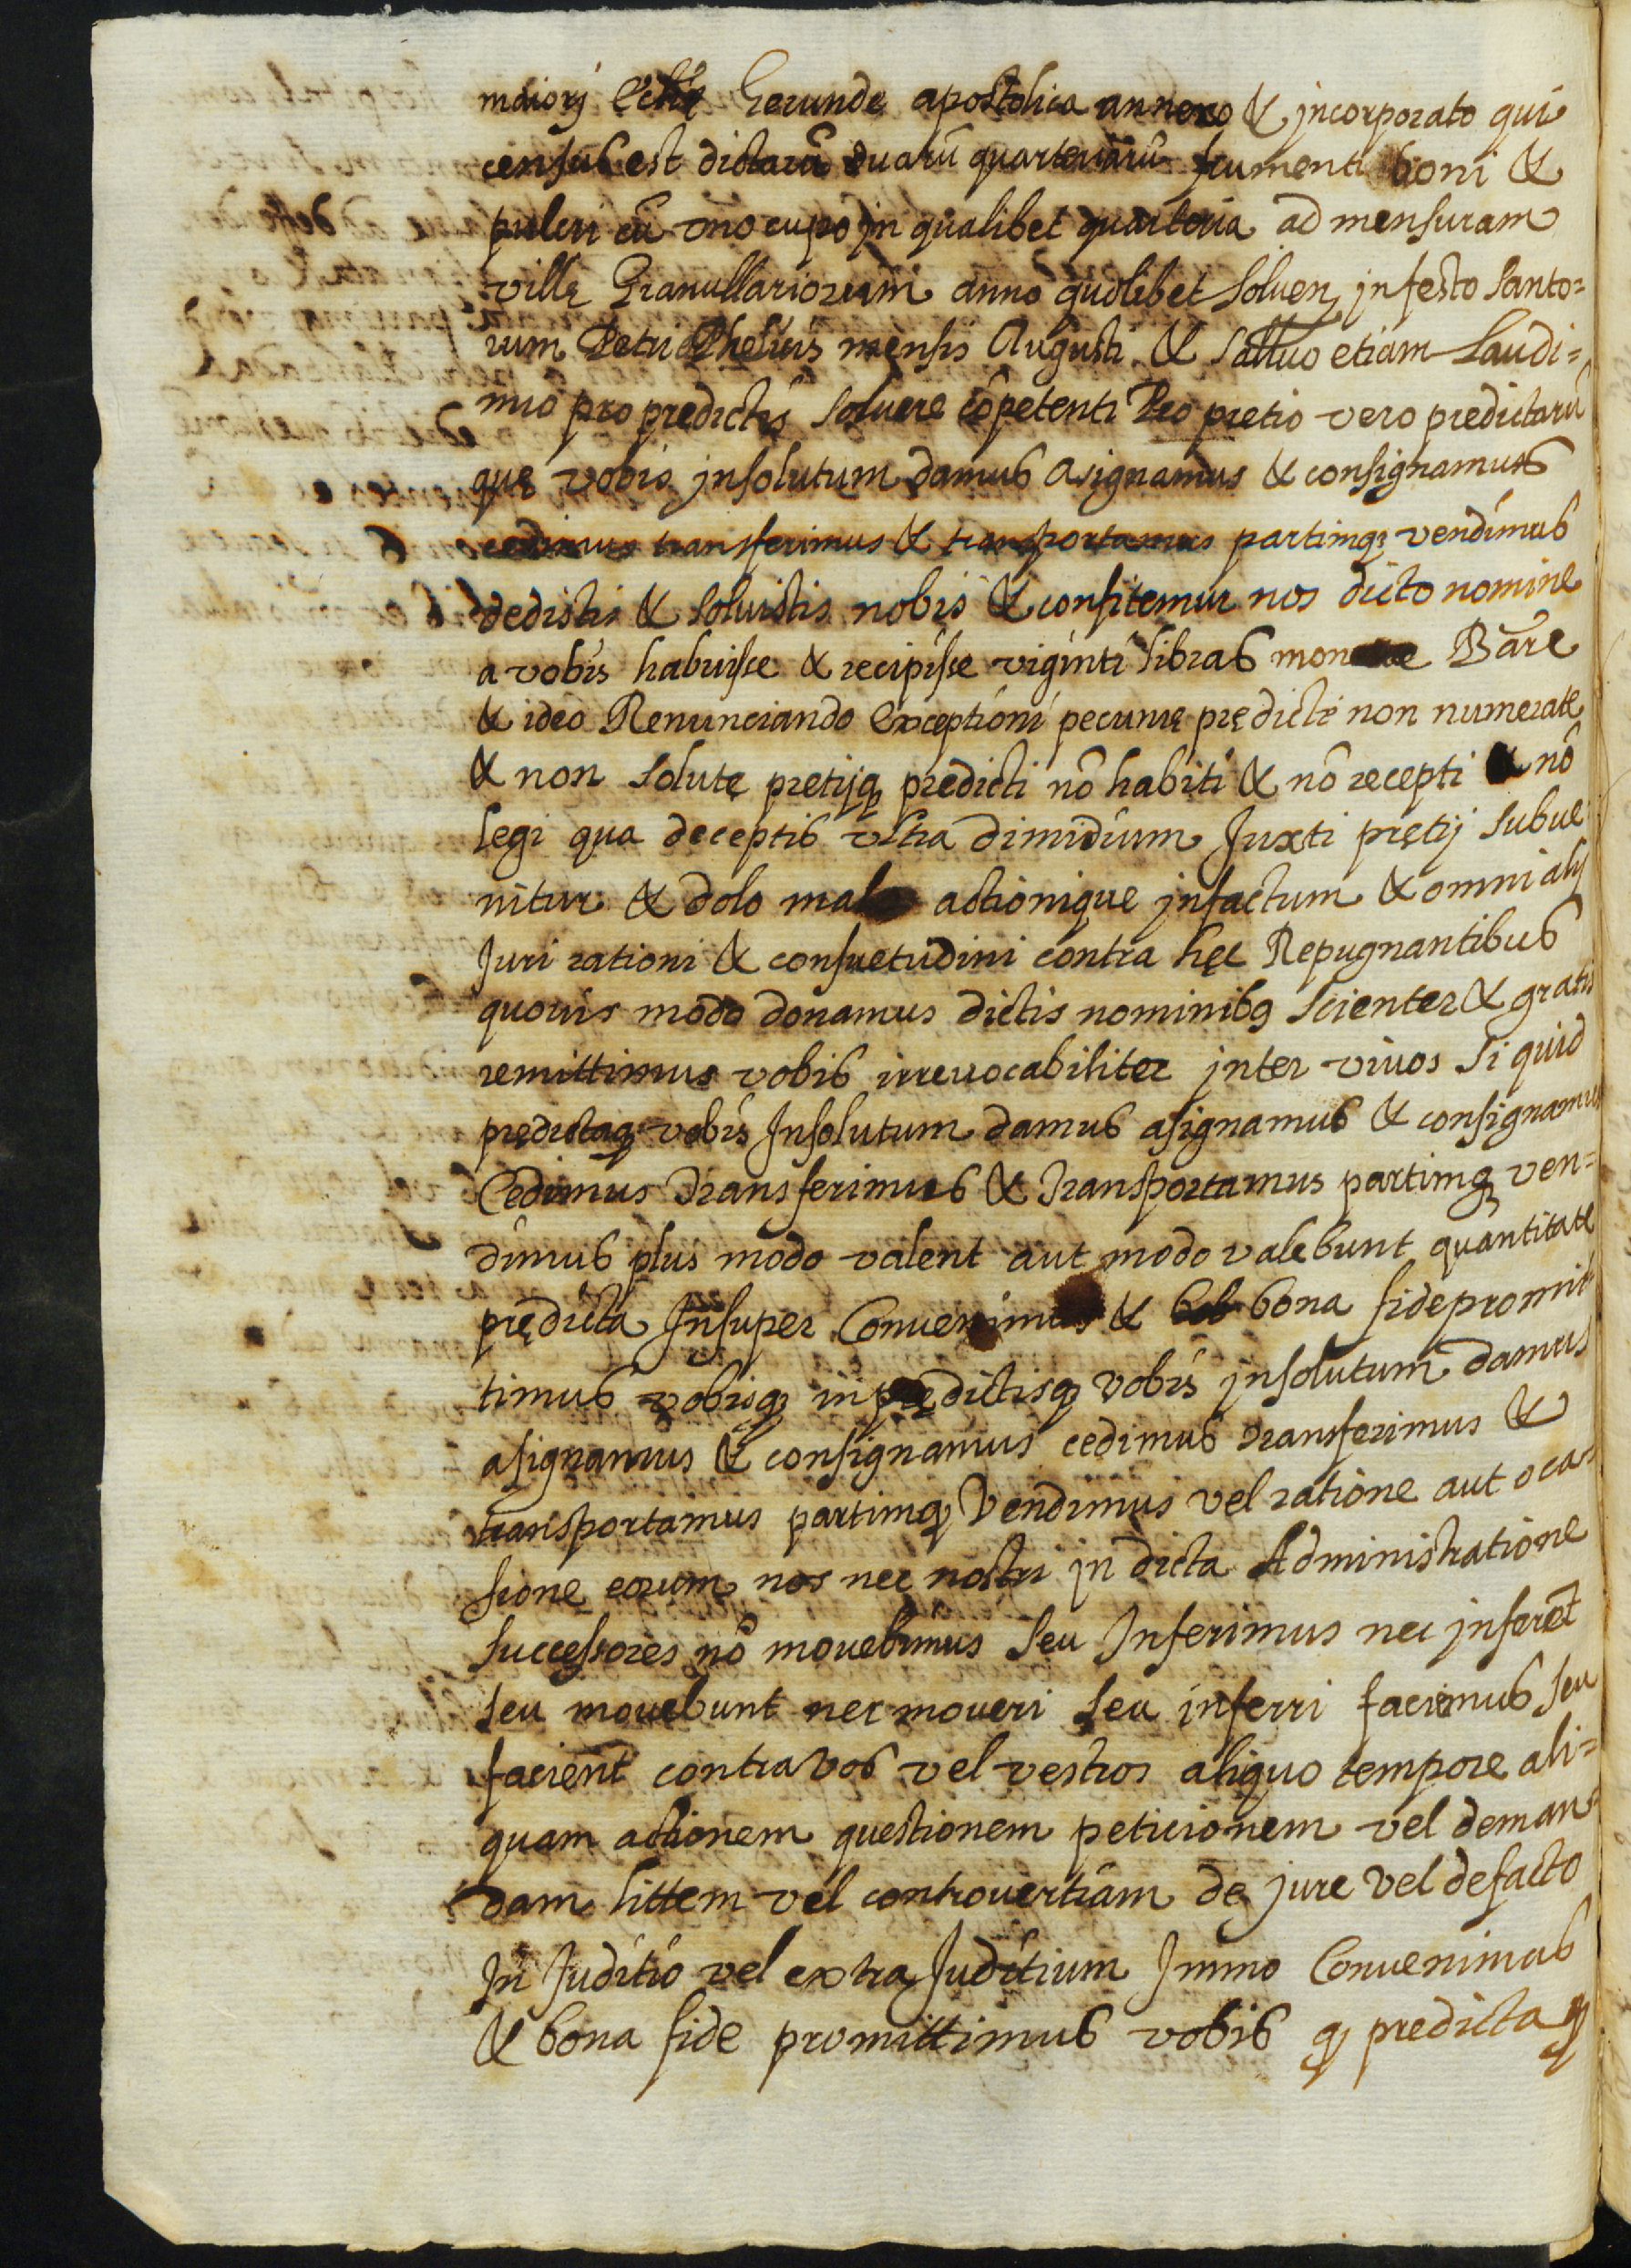 maiorj Ecclię Gerunde apostolica annexo & jncorporato qui
census est dictarũ duarũ quarteriarũ frumenti boni &
pulcri cũ vno cupo jn qualibet quarteria ad mensuram
villę Granullariorum anno quolibet soluen̨ in festo santo=
rum Petri & Phelicis mensis Augusti & salluo etiam Laudi=
mio pro predictis soluere cõpetenti Pro pretio vero predictarũ
quę vobis jnsolutum damus asignamus & consignamus
cedimus transferimus & transportamus partimq; vendimus
dedistis & soluistis nobis & confitemur nos dicto nomine
a vobis habuisse & recipisse viginti libras monete Barẽ
& ideo Renunciando exceptioni pecunię prędictę non numerate
& non solutę pretijq; predicti nõ habiti & nõ recepti & nõ
legi qua deceptis vltra dimidium Juxti pretij subue
nitur & dolo malo actionique jnfactum & omni alij
Juri rationi & consuetudini contra hęc Repugnantibus
quouis modo donamus dictis nominibq; scienter & gratis
remittimus vobis irreuocabiliter jnter viuos si quid
prędictaq; vobis Jnsolutum damus asignamus & consignamus
Cedimus Transferimus & Transportamus partimq; ven=
dimus plus modo valent aut modo valebunt quantitate
prędicta Jnsuper Conuenimus & bona fide promit
timus vobisq; in prędictisq; vobis jnsolutum damus
asignamus & consignamus cedimus transferimus &
transportamus partimq; Vendimus vel ratione aut ocas
sione eorum nos nec nostri jn dicta Administratione
successores nõ mouebimus seu Jnferimus nec jnferẽt
seu mouebunt nec moueri seu inferri faciemus seu
facient contra vos vel vestros aliquo tempore ali=
quam actionem questionem peticionem vel deman=
dam littem vel controuertiam de jure vel de facto
Jn Juditio vel extra Juditium Jmmo Conuenimus
& bona fide promittimus vobis q; predictaq;